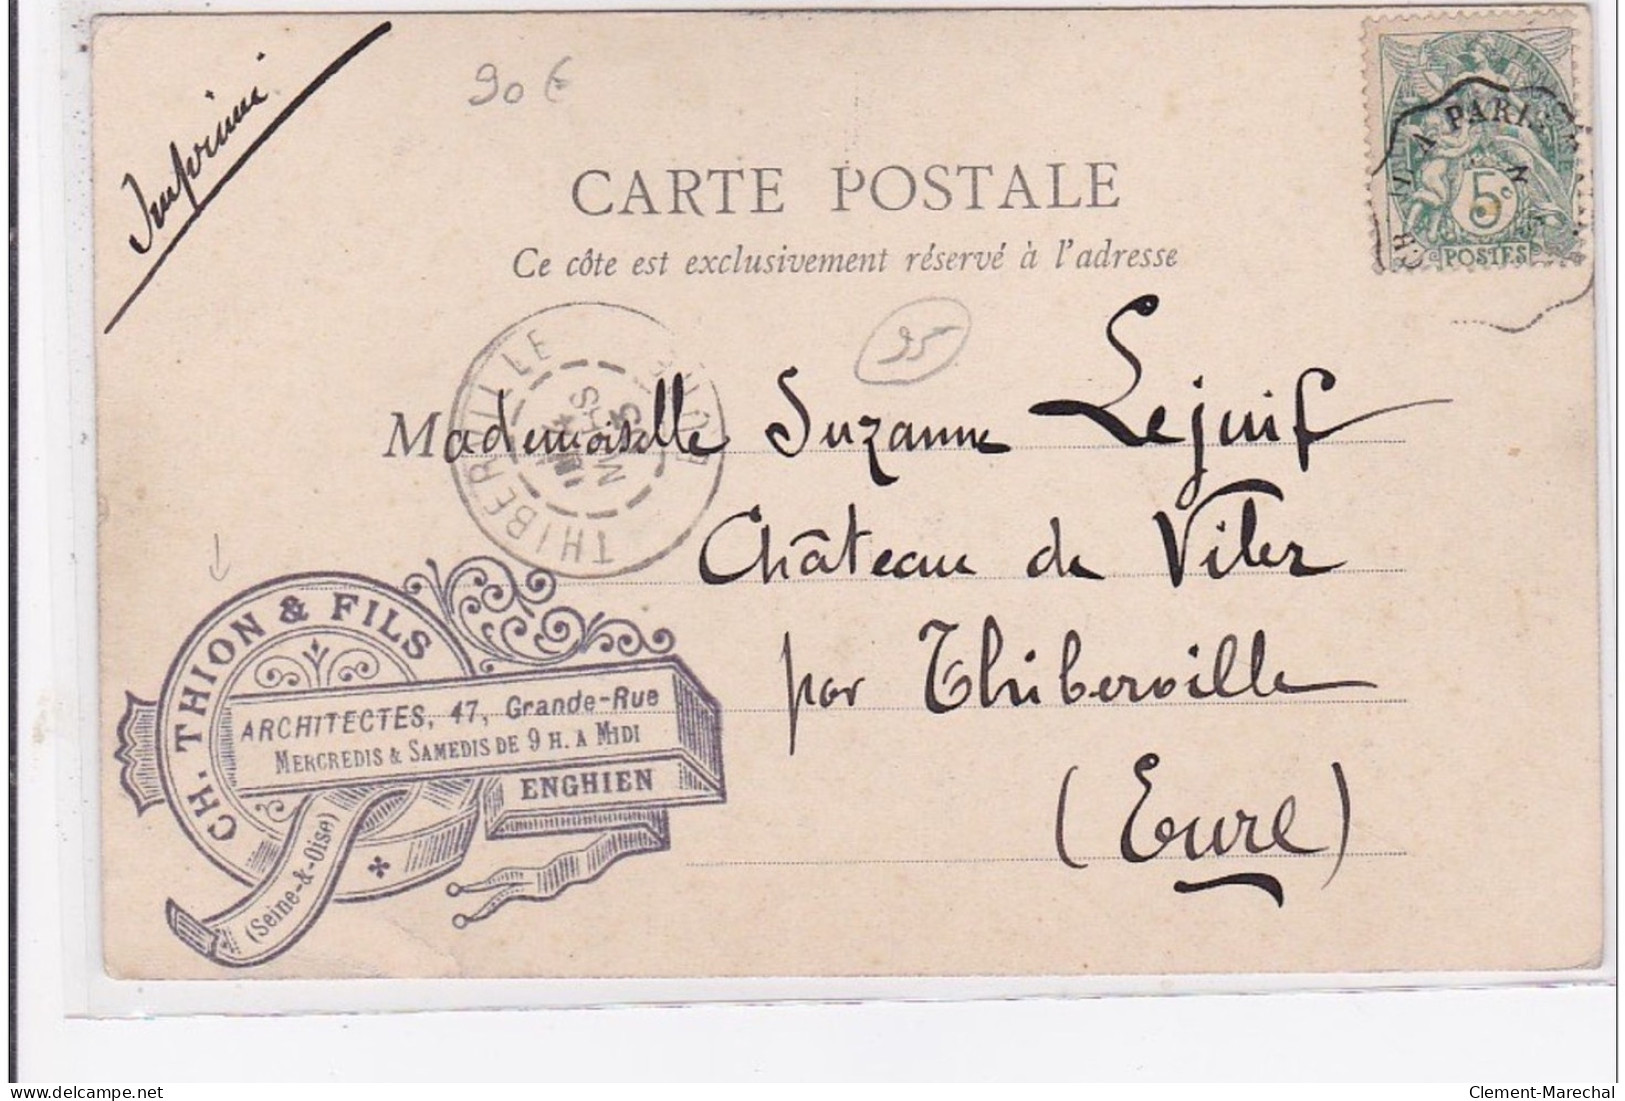 Imprimé
90 €
CARTE POSTALE
Ce côte est exclusivement réservé à l'adresse
A PARIS
5c
POSTES
95
THIBERVILLE
EURE
Mademoiselle Suzanne Lejuif
Château de Viler
par Thiberville
(Eure)
CH. THION & FILS
ARCHITECTES, 47, Grande-Rue
MERCREDIS & SAMEDIS DE 9 H. A MIDI
ENGHIEN
(Seine-&-Oise)
Clement-Marechal